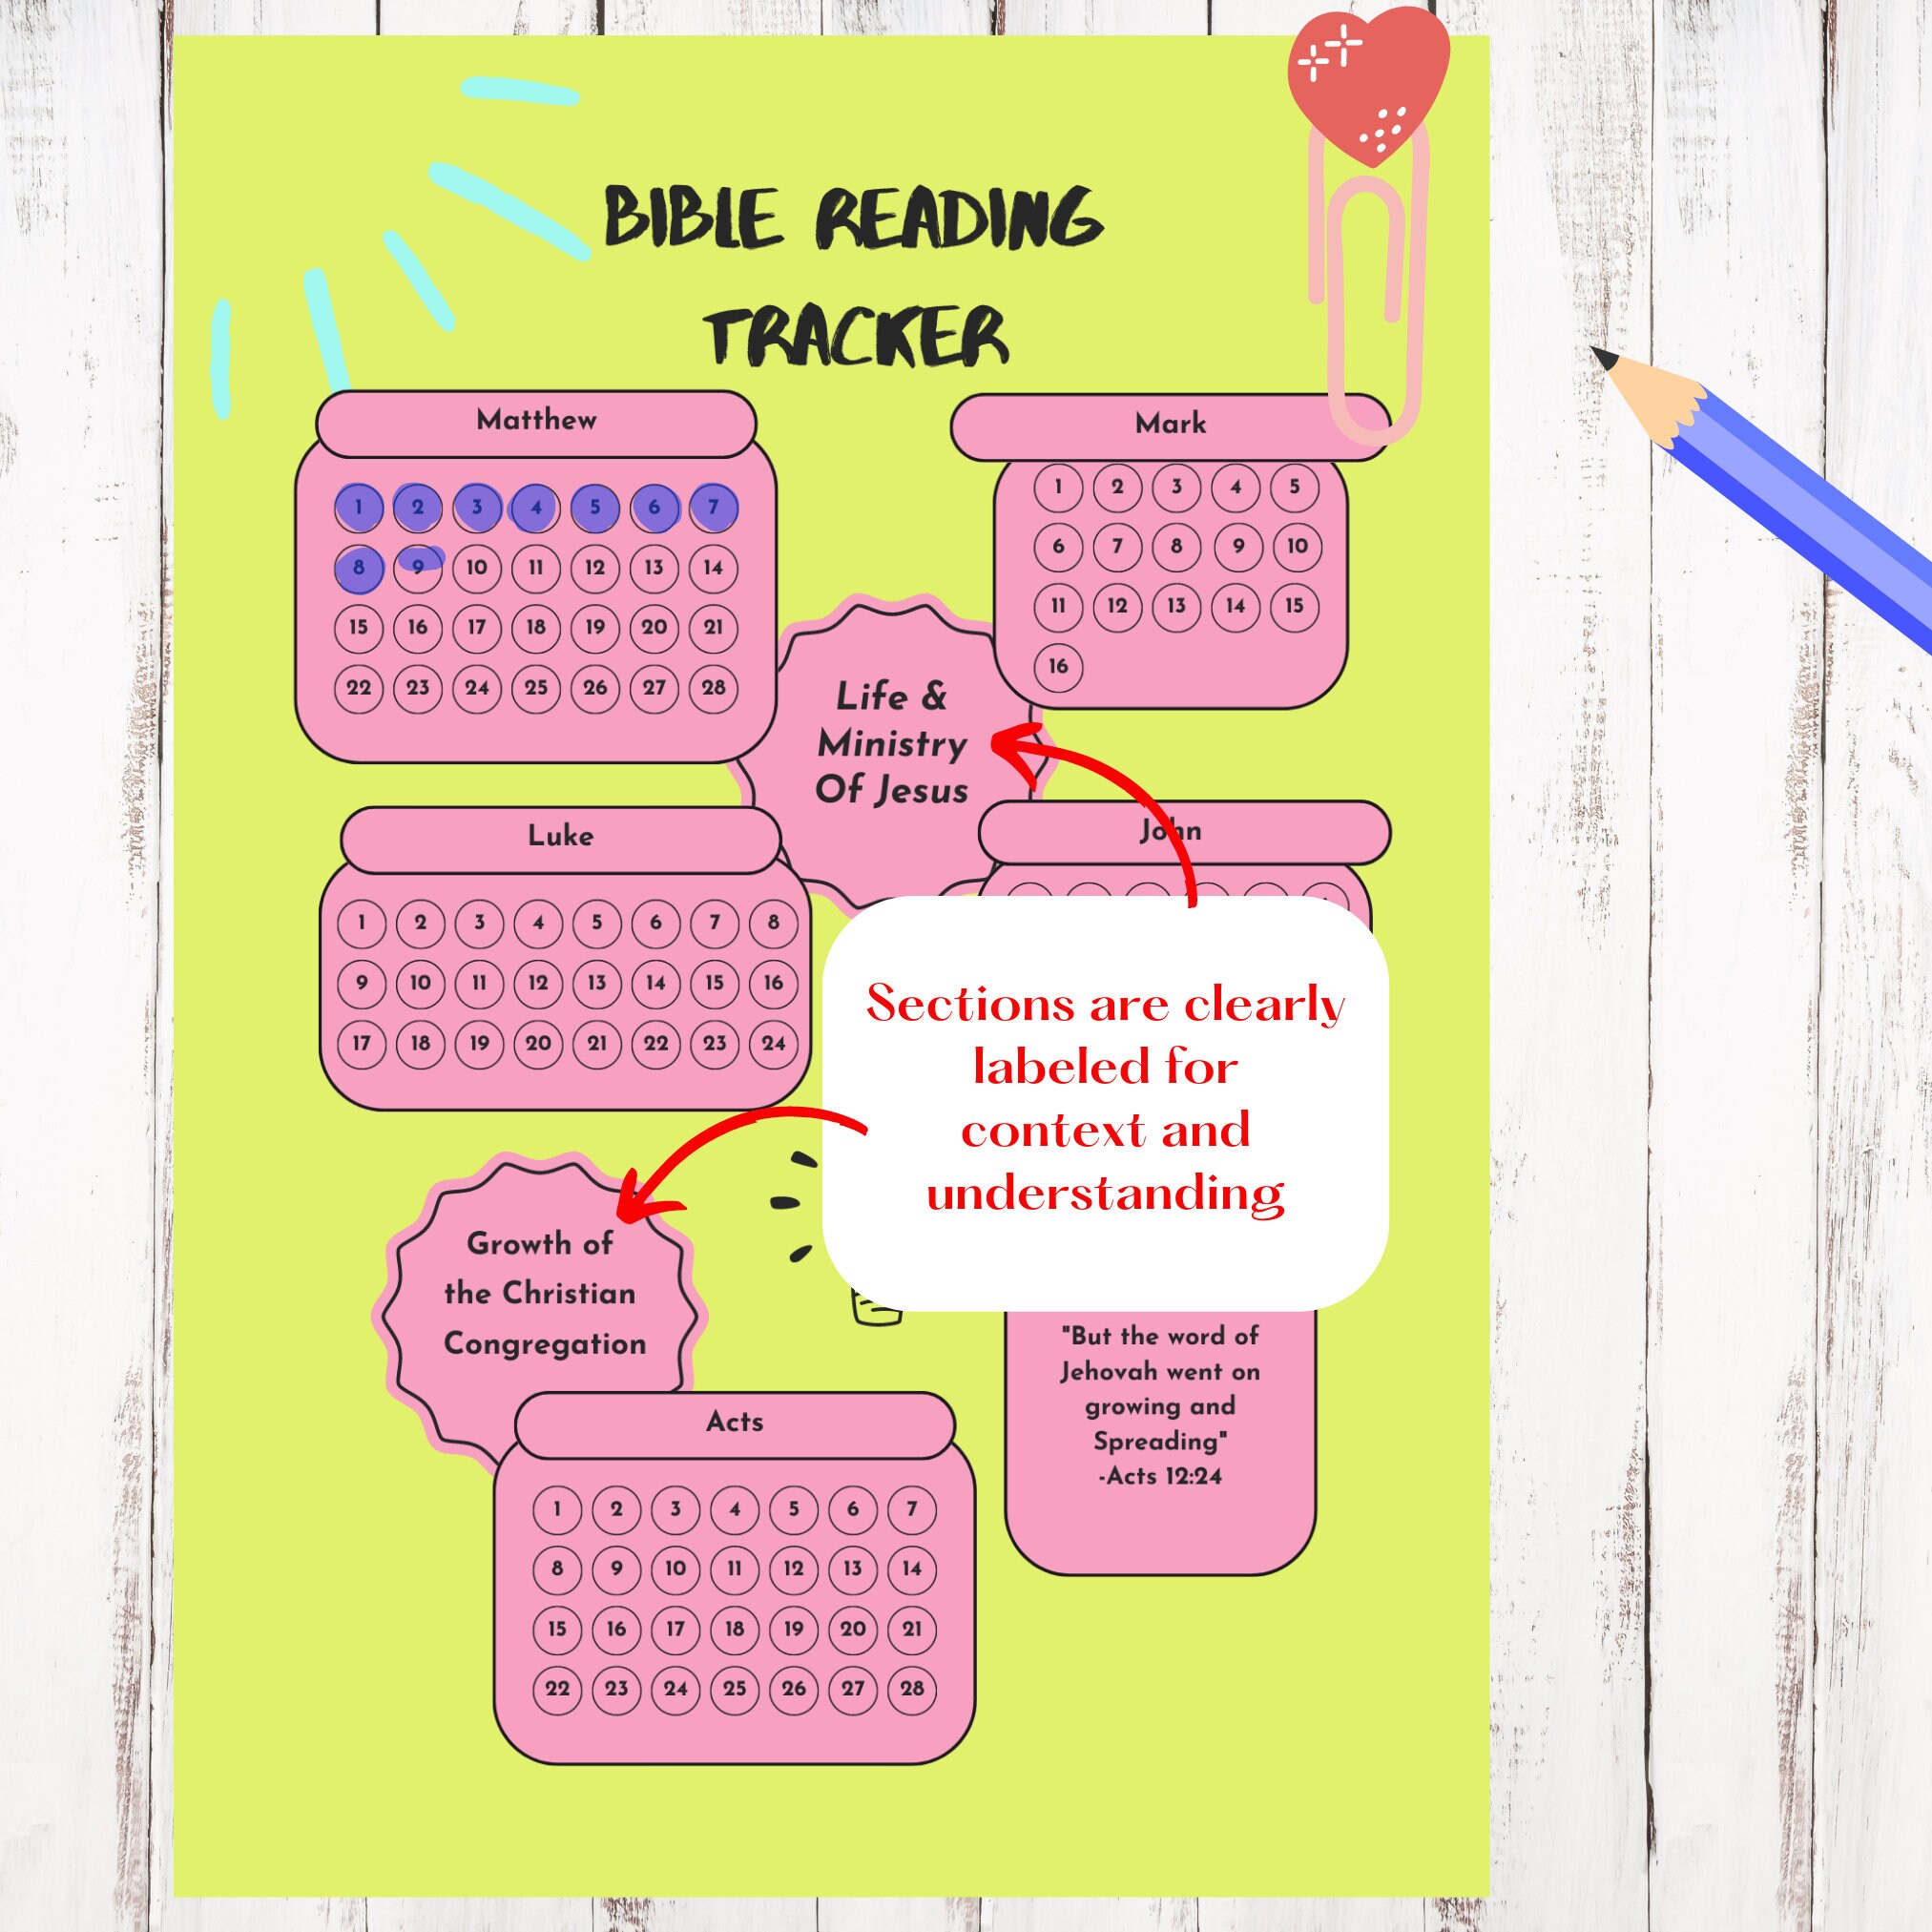 BIBLE READING
TRACKER
Matthew
1 2 3 4 5 6 7
8 9 10 11 12 13 14
15 16 17 18 19 20 21
22 23 24 25 26 27 28
Mark
1 2 3 4 5
6 7 8 9 10
11 12 13 14 15
16
Life &
Ministry
Of Jesus
Luke
1 2 3 4 5 6 7 8
9 10 11 12 13 14 15 16
17 18 19 20 21 22 23 24
John
Sections are clearly
labeled for
context and
understanding
Growth of
the Christian
Congregation
"But the word of
Jehovah went on
growing and
Spreading"
-Acts 12:24
Acts
1 2 3 4 5 6 7
8 9 10 11 12 13 14
15 16 17 18 19 20 21
22 23 24 25 26 27 28